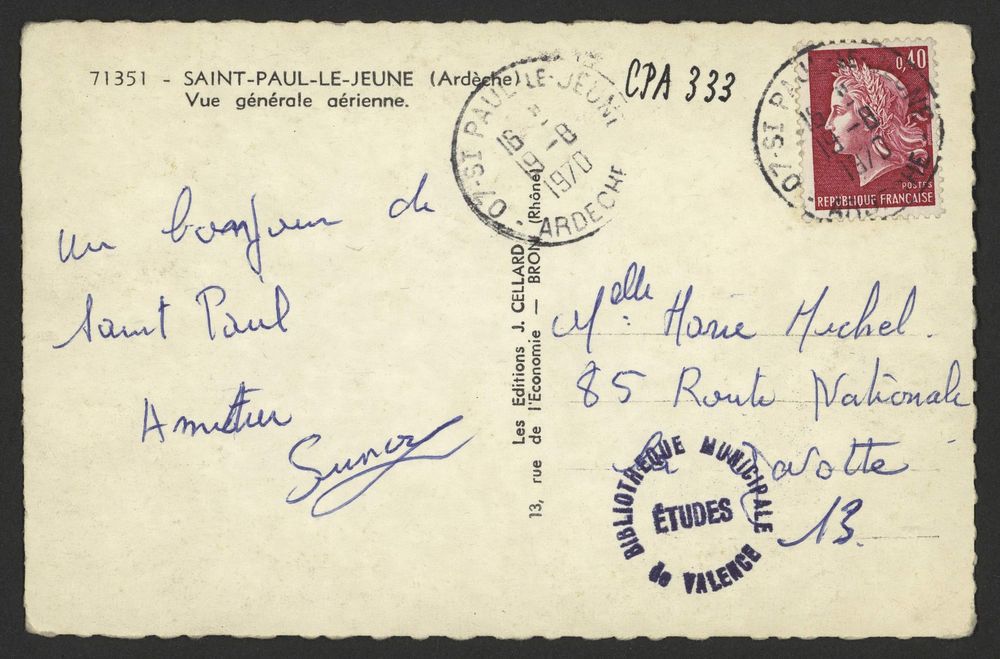 71351 - SAINT-PAUL-LE-JEUNE (Ardèche)
Vue générale aérienne.
CPA 333
07-ST PAUL-LE-JEUNE
16 H
19-8
1970
ARDECHE
0,40
POSTES
REPUBLIQUE FRANÇAISE
07-ST PAUL
16 H
19-8
1970
un bonjour de
Saint Paul
Les Editions J. CELLARD
13, rue de l'Economie — BRON (Rhône)
Melle Marie Michel.
85 Route Nationale
La
13.
BIBLIOTHEQUE MUNICIPALE
ÉTUDES
de VALENCE